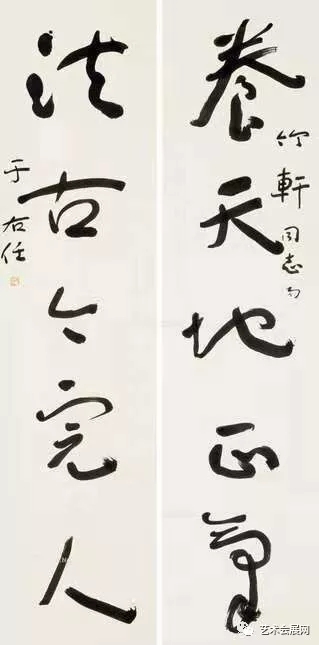 養天地正气
竹軒同志正
法古今完人
于右任
艺术会展网